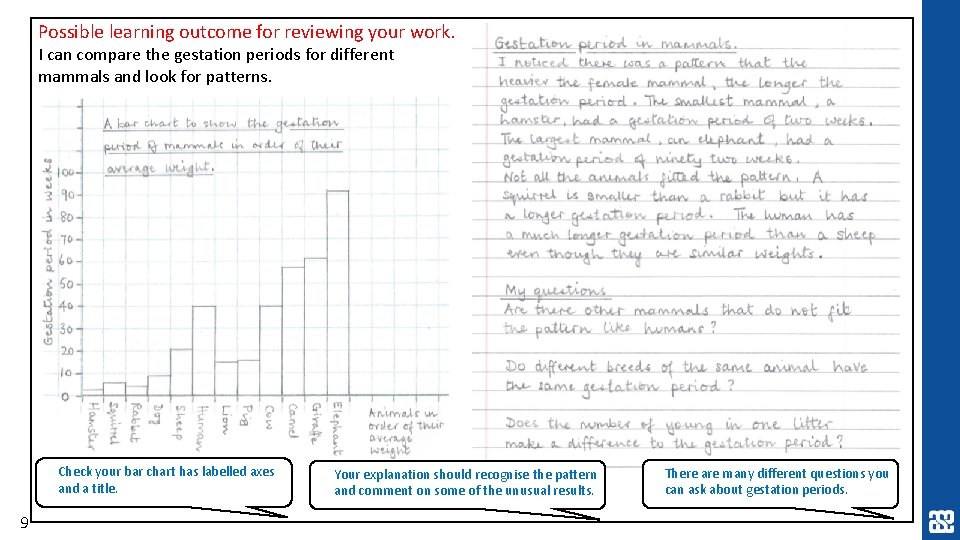 Possible learning outcome for reviewing your work.
I can compare the gestation periods for different
mammals and look for patterns.
A bar chart to show the gestation
period of mammals in order of their
average weight.
Gestation period in weeks
100
90
80
70
60
50
40
30
20
10
0
Hamster
Squirrel
Rabbit
Dog
Sheep
Human
Lion
Pig
Cow
Camel
Giraffe
Elephant
Animals in
order of their
average
weight
Gestation period in mammals.
I noticed there was a pattern that the
heavier the female mammal, the longer the
gestation period. The smallest mammal, a
hamster, had a gestation period of two weeks.
The largest mammal, an elephant, had a
gestation period of ninety two weeks.
Not all the animals fitted the pattern. A
squirrel is smaller than a rabbit but it has
a longer gestation period. The human has
a much longer gestation period than a sheep
even though they are similar weights.
My questions
Are there other mammals that do not fit
the pattern like humans?
Do different breeds of the same animal have
the same gestation period?
Does the number of young in one litter
make a difference to the gestation period?
Check your bar chart has labelled axes
and a title.
Your explanation should recognise the pattern
and comment on some of the unusual results.
There are many different questions you
can ask about gestation periods.
9